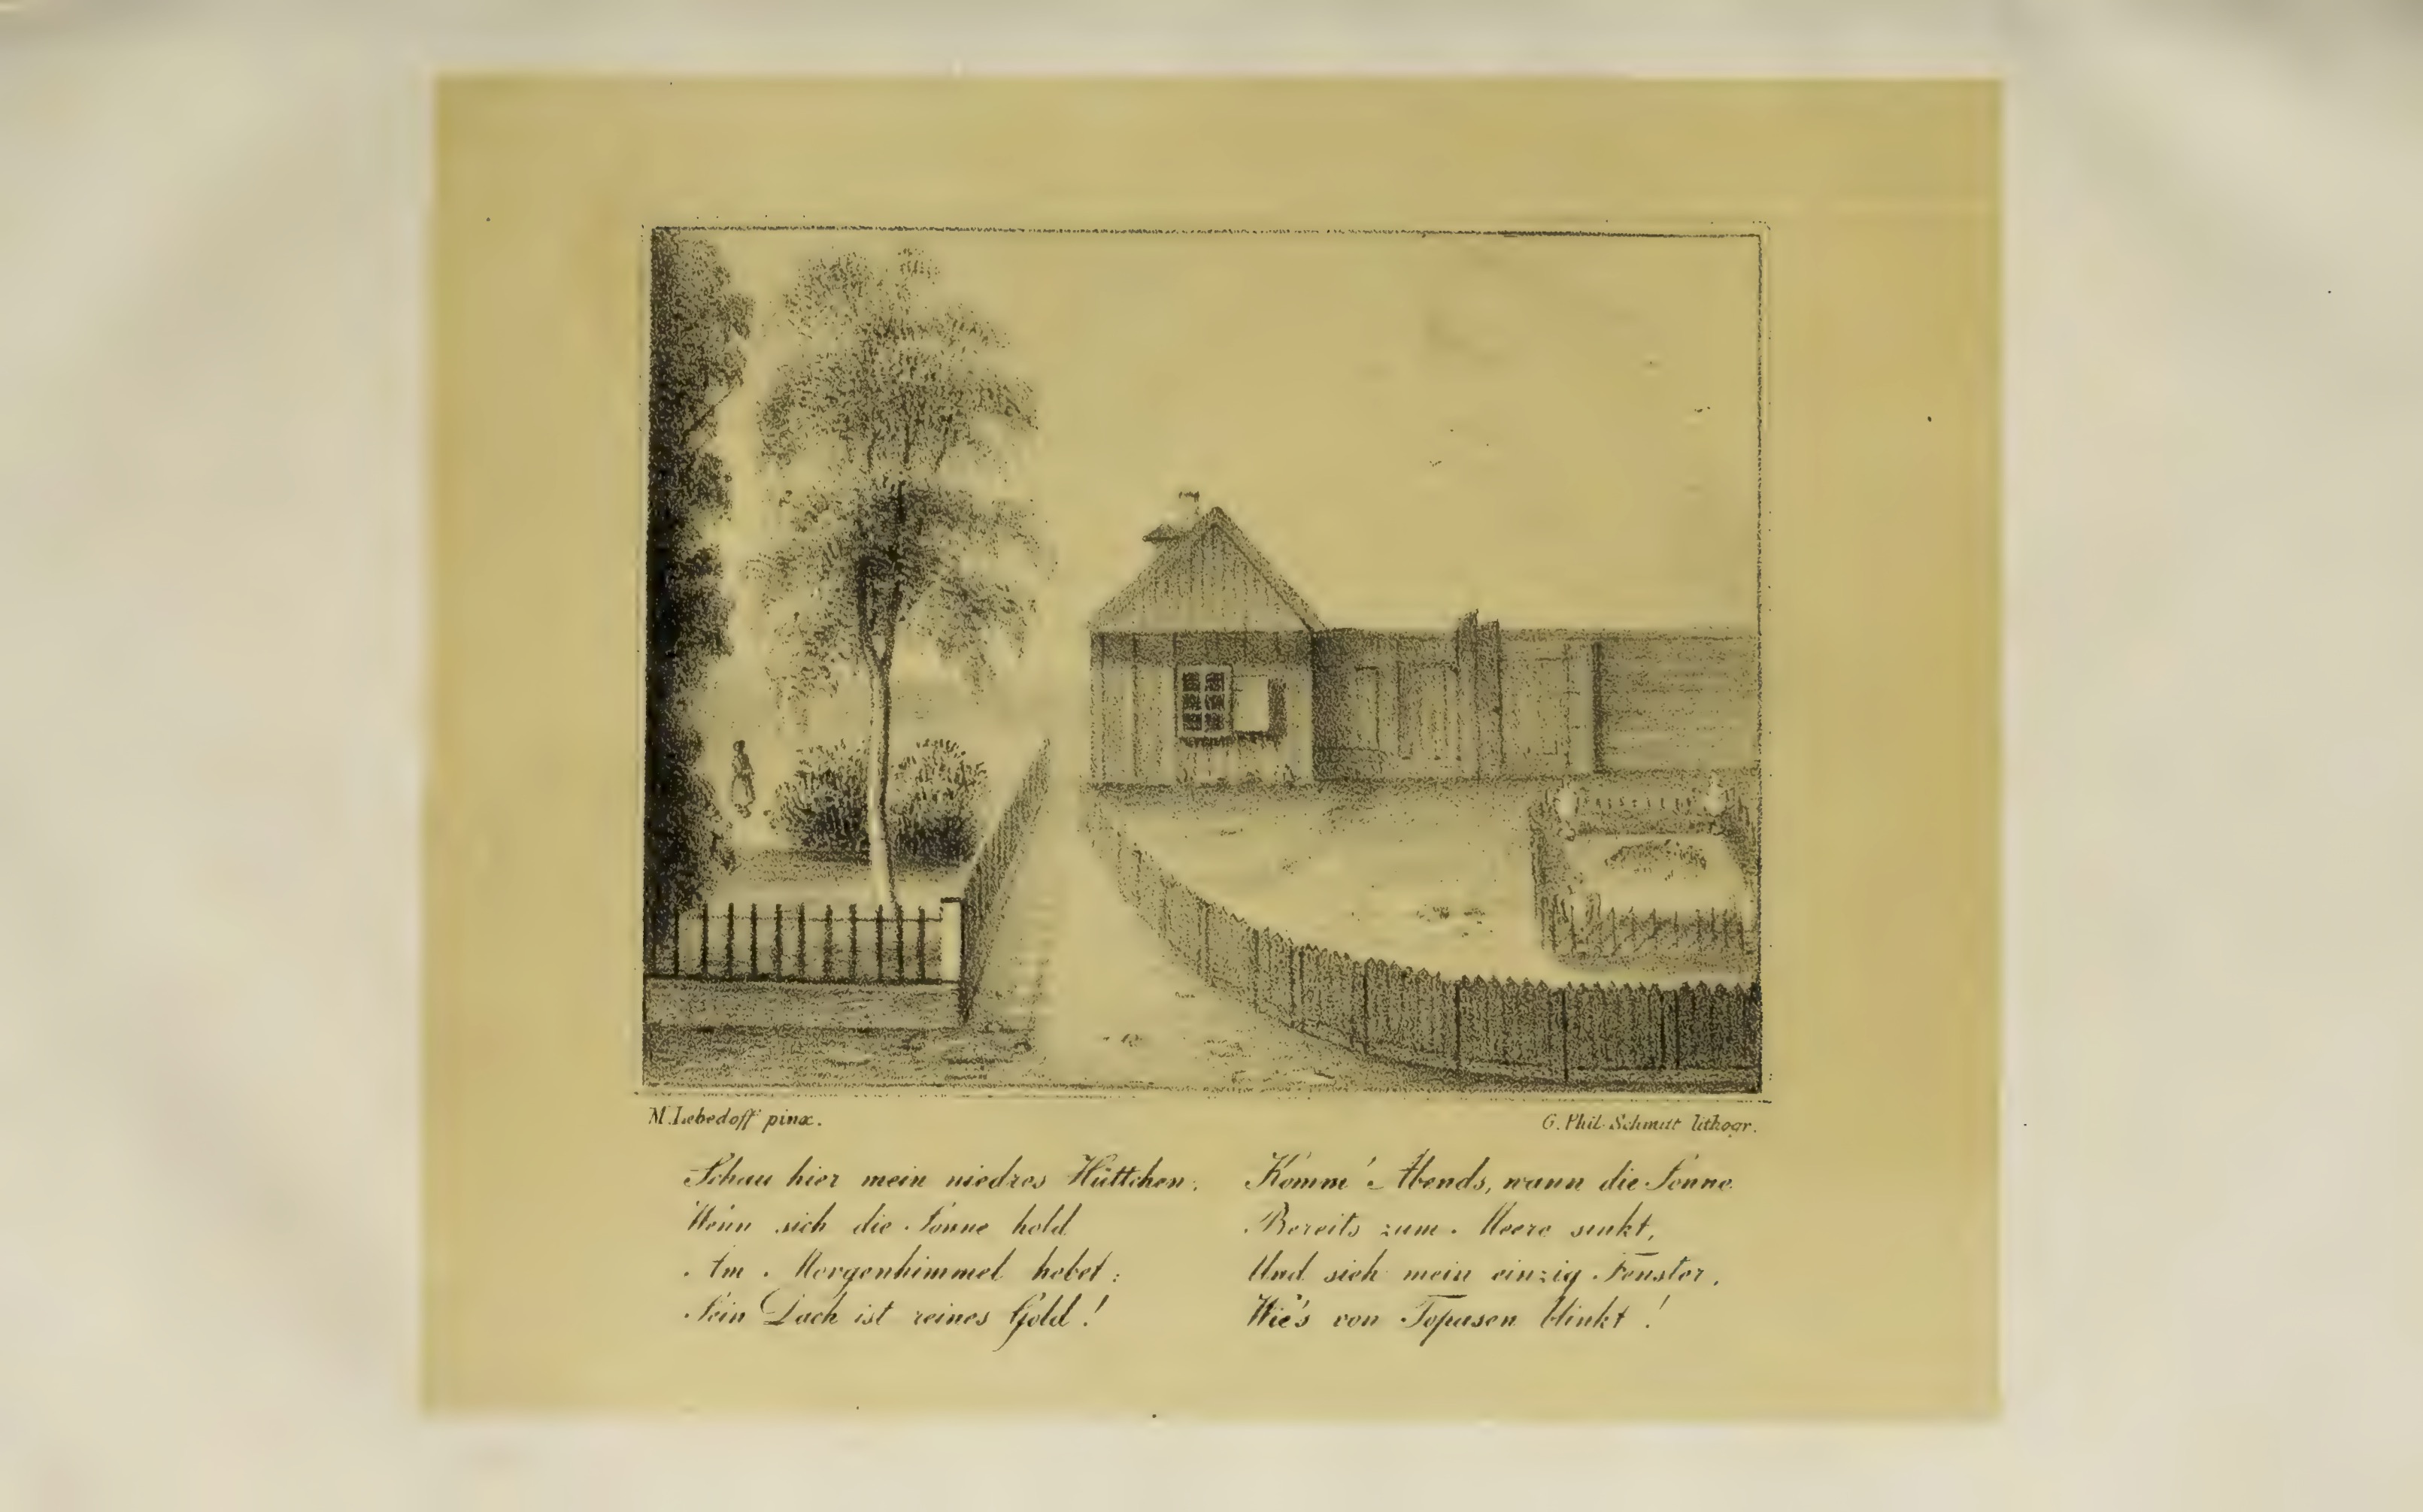 M. Lebedoff pinx.
G. Phil. Schmitt lithogr.
Schau hier mein niedres Hüttchen,
Wenn sich die Sonne hold
Am Morgenhimmel hebet:
Sein Dach ist reines Gold!
Komm' Abends, wann die Sonne
Bereits zum Meere sinkt,
Und sich mein einzig Fenster,
Wie's von Topasen blinkt!